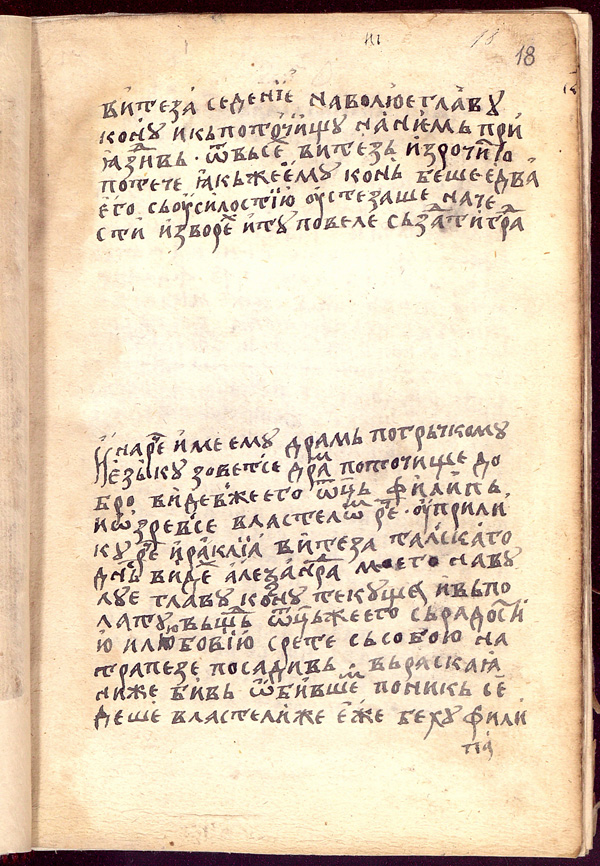 18
витеза седенїе на волюе главу
кону и кь поточищу на нѥмь при
ꙗзнвь · ѿ всѣ витезь изрочитїю
потече ꙗкьже ѥму конь беше едва
его сь оусилостїю оустезаше на че
сти изворе и ту повеле сьзати гра
и наре име ему драмь по грьчкому
ѥзыку зовет се дра поточище до
бро видевже его ѿць филипь,
и ѡзрев се властелѡ ре · оу прили
ку ре ираклїа витеза талскаго
днь виде алеѯандра моего на ву
луе главу кону текуща, и вь по
лату вьшь ѿць же его сь радостїи
ю и любовїю срете сь собою на
трапезе посадивь
ниже бивь ѿ бившѥ поникь се
деше властели же еже беху фили
па